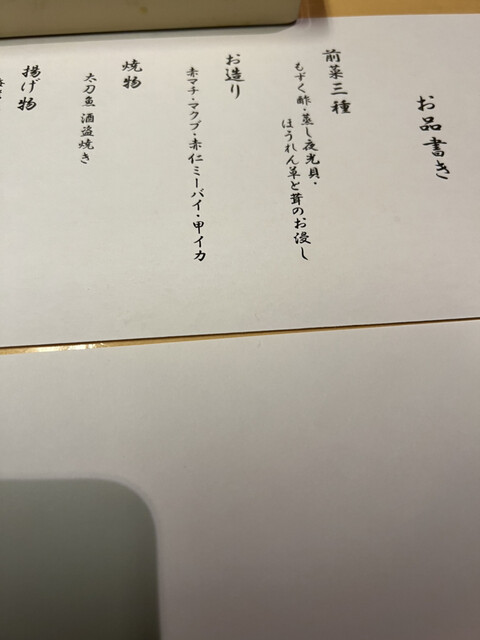 お品書き
前菜三種
もずく酢・蒸し夜光貝・
ほうれん草と茸のお浸し
お造り
赤マチ・マクブ・赤仁ミーバイ・甲イカ
焼物
太刀魚 酒盗焼き
揚げ物